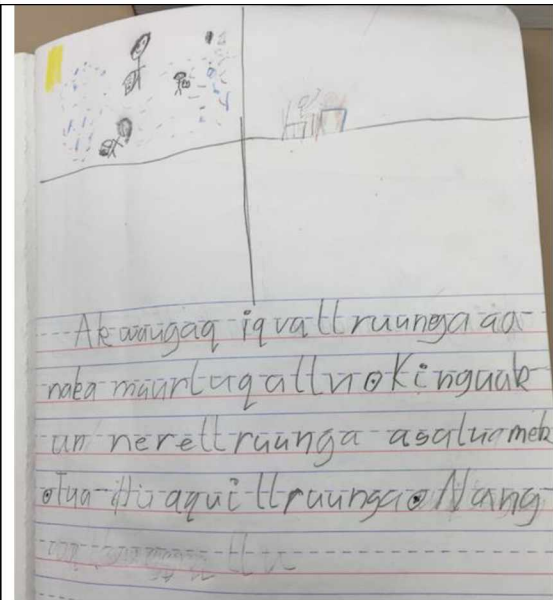 Akwaugaq iqvallruunga aa
naka maurluqallu. Kinguak
un nerellruunga asaluamek
.Tua-llu aquillruunga. Nang